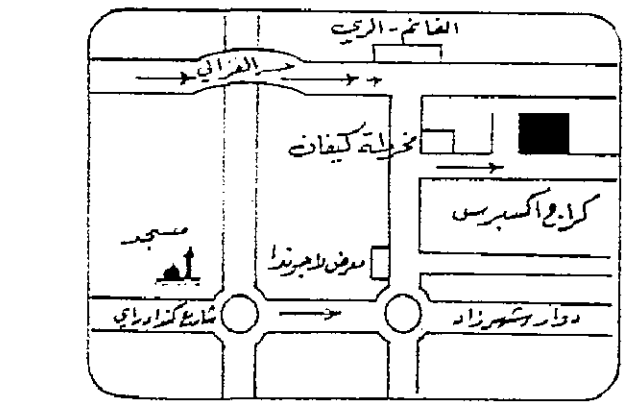 الغانم - الري
جسر الغزالي
مخرطة كيفان
كراج اكسبرس
مسجد
معرض لاجوندا
شارع كندادراي
دوار شهرزاد